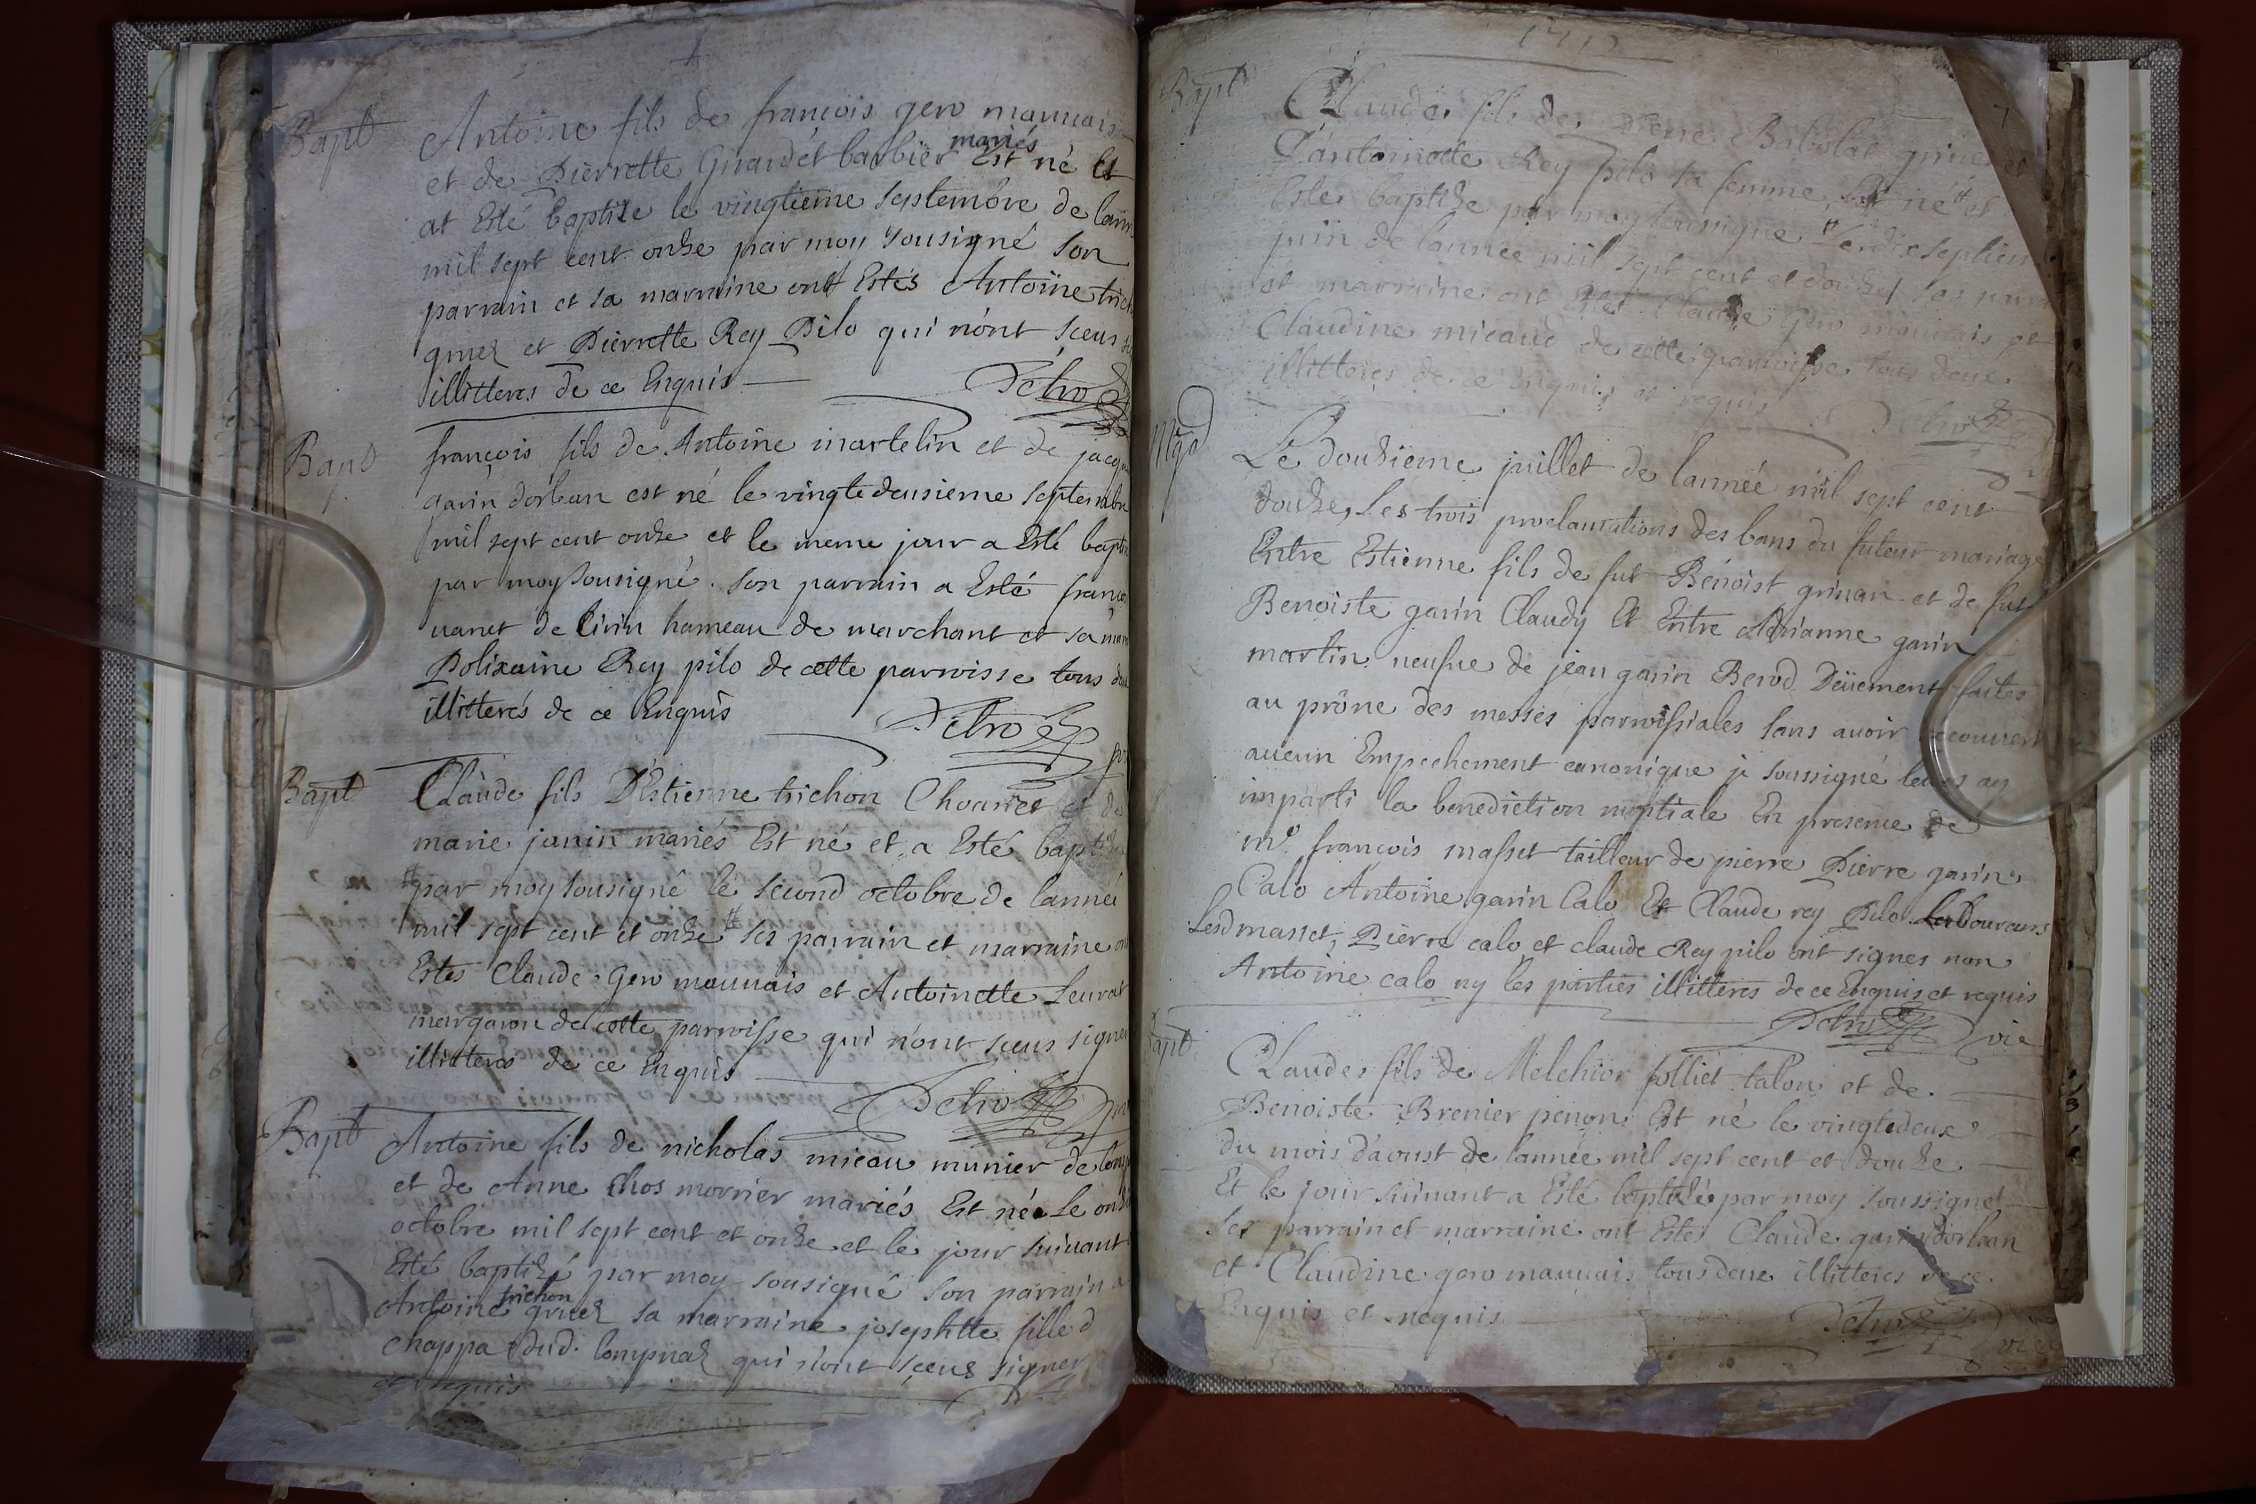 Bapt
Antoine fils de françois gero mauuais
mariés
et de Pierrette Girardet barbier Est né Et
at Esté baptize le vingtieme septembre de lann
mil sept cent onze par moy sousigné son
parrain et sa marraine ont Estés Antoine trich
gruez et Pierrette Rey Pilo qui n'ont sceus si
illitteres de ce Enquis
Petro
Bapt
françois fils de Antoine martelin et de jacq
garin dorban est né le vingtedeusieme septembre
mil sept cent onze et le meme jour a Esté bapti
par moy sousigné. son parrain a Esté franço
uanet de Cirin hameau de marchant et sa mar
Polixaine Rey pilo de cette parroisse tous d
illitterés de ce Enquis
Petro
Bapt
Claude fils D'Estienne trichon Chouriet et de
marie janin mariés Est né et a Esté bapti
par moy sousigné le second octobre de lanneé
mil sept cent et onze ses parrain et marraine on
Estes Claude gero mauuais et Antoinette Leurat
margaron de cette parroisse qui n'ont sceus signer
illitteres de ce Enquis
Petro
Bapt
Antoine fils de nicholas micau munier de
et de Anne Chos morrier mariés Est né Le onz
octobre mil sept cent et onze et le jour suiuant
Esté baptizé par moy sousigné son parrain a
trichon
Antoine gruez sa marraine josephtte fille d
chappa dud. Compnaz qui n'ont sçeus signer
et requis
1712
7
Bapt
Claude fils de Pierre Babolat gruez et
D'antoinette Rey pilo sa femme, Est né et
Esté baptize par moy soussigne Le dixseptiem
juin de lannee mil sept cent et douze, ses parr
et marraine ont Estes Claude gero mauuais et
Claudine micaud de cette parroisse tous deux
illitteres de ce enquis et requis
Petro
Mge
Le douzieme juillet de lanneé mil sept cent
douze, Les trois proclamations des bans du futeur mariage
Entre Estienne fils de fut Benoist grinan et de fut
Benoiste garin Claudy Et Entre Adrianne garin
martin neufue de jean garin Berod Deüement faites
au prône des messes parroissiales sans auoir
aucun Empechement canonique je soussigné leurs ay
imparti la benediction nuptiale En presence de
me. françois masset tailleur de pierre Pierre garin
Calo Antoine garin Calo Et Claude rey Pilo Labboureurs
Lesd masset, Pierre calo et claude Rey pilo ont signes non
Antoine calo ny les parties illitteres de ce Enquis et requis
Petro vic
Bapt
Claudes fils de Melchior folliet talon et de
Benoiste Brenier penon Est né le vingtedeux
du mois d'aoust de lannée mil sept cent et douze
Et le jour suiuant a Esté baptizé par moy soussignet
Ses parrain et marraine ont Estes Claude garin dorban
et Claudine gero mauuais tous deux illitteres de ce
Enquis et requis
Petro vic